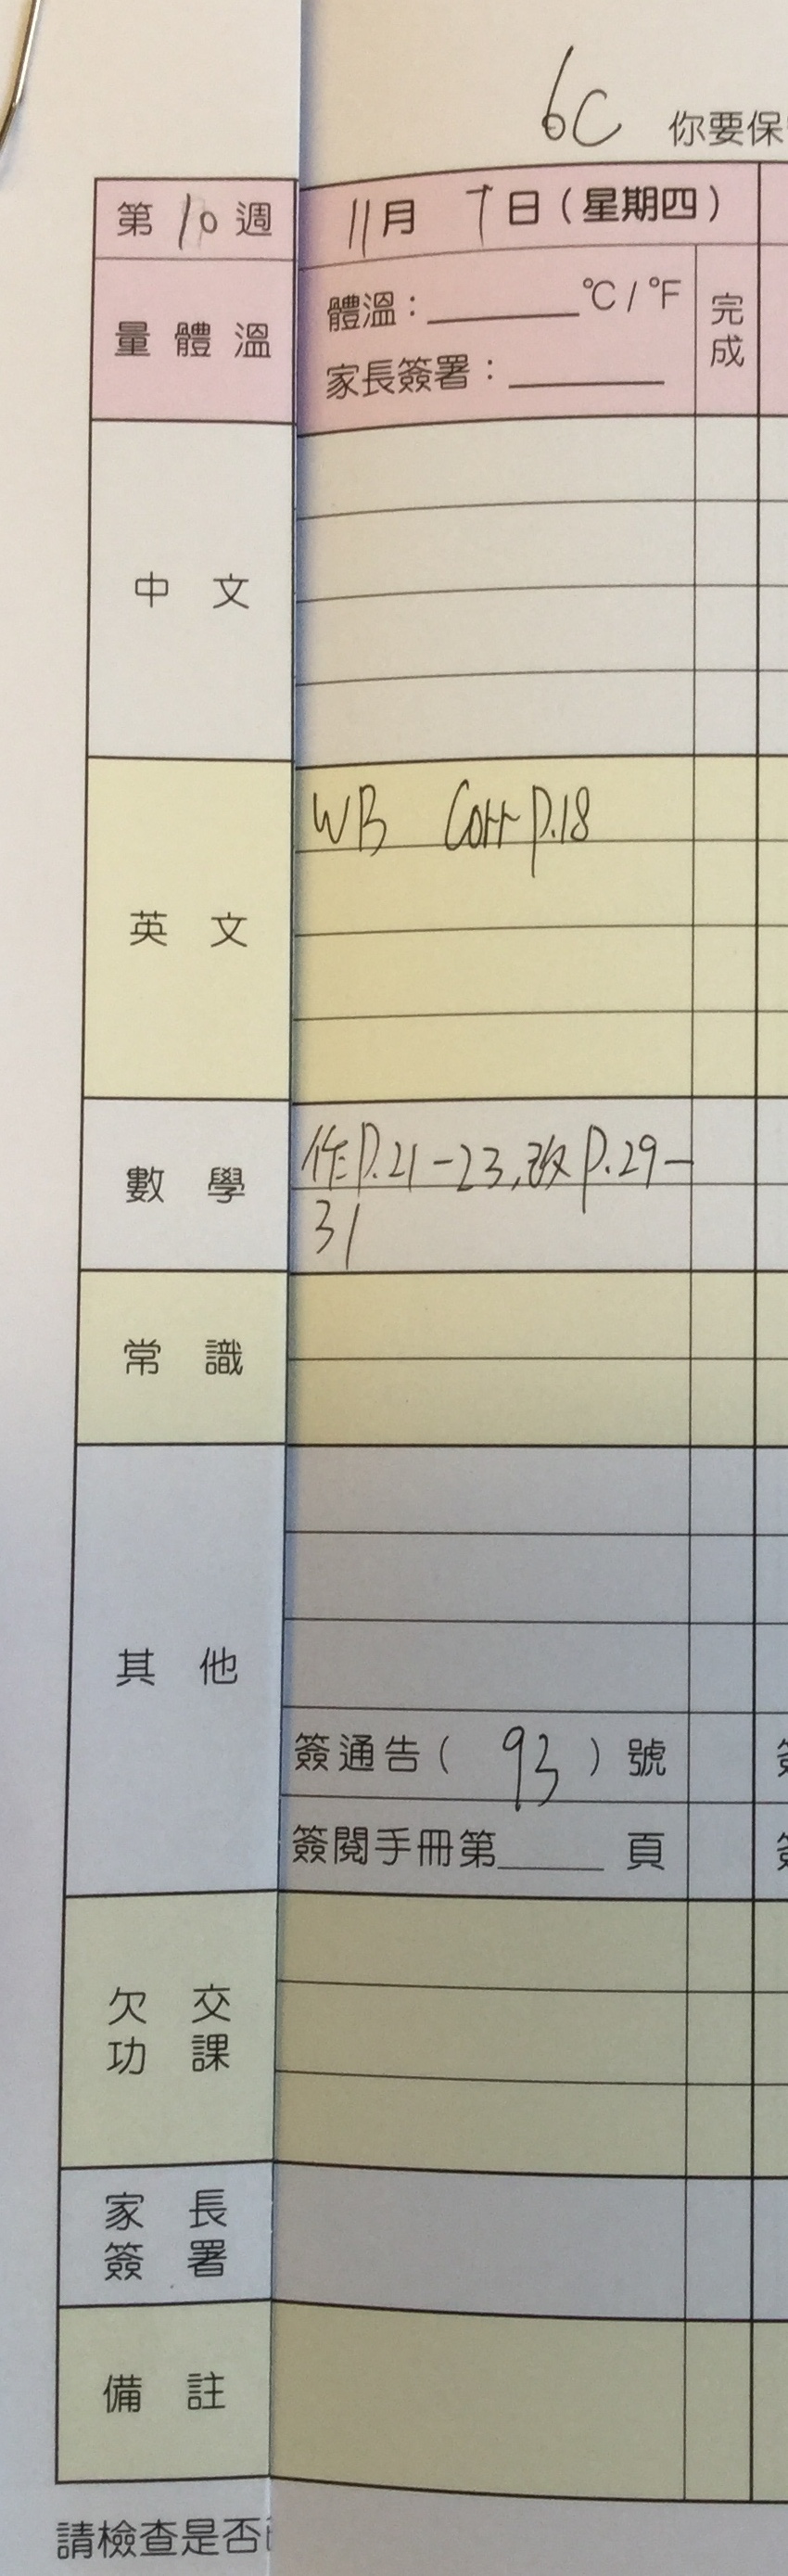 6C 你要保
第10週 11月 7日(星期四)
量體溫 體溫：______°C / °F 完成
家長簽署：______
中文
英文 WB Corr P.18
數學 作P.21-23,改P.29-
31
常識
其他
簽通告( 93 )號
簽閱手冊第____頁
欠交
功課
家長
簽署
備註
請檢查是否